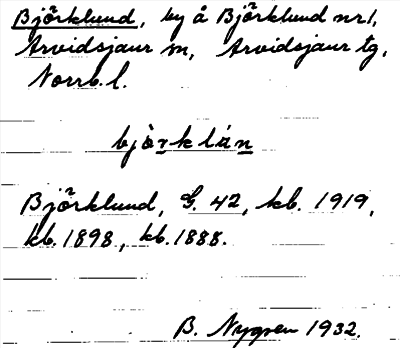 Björklund, by å Björklund nr 1,
Arvidsjaur sn, Arvidsjaur tg,
Norrb. l.
björklán
Björklund, G. 42, kb. 1919,
kb. 1898, kb. 1888.
B. Nygren 1932.